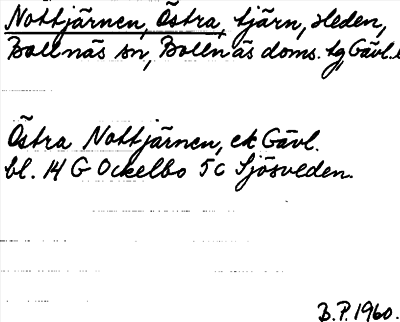 Nottjärnen, Östra, tjärn, Heden,
Bollnäs sn, Bollnäs doms. tg, Gävl.
Östra Nottjärnen, ek Gävl.
bl. 14 G Ockelbo 5c Sjösveden.
B.P. 1960.